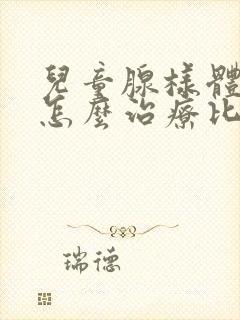 兒童腺樣體
怎麼治療比
瑞德